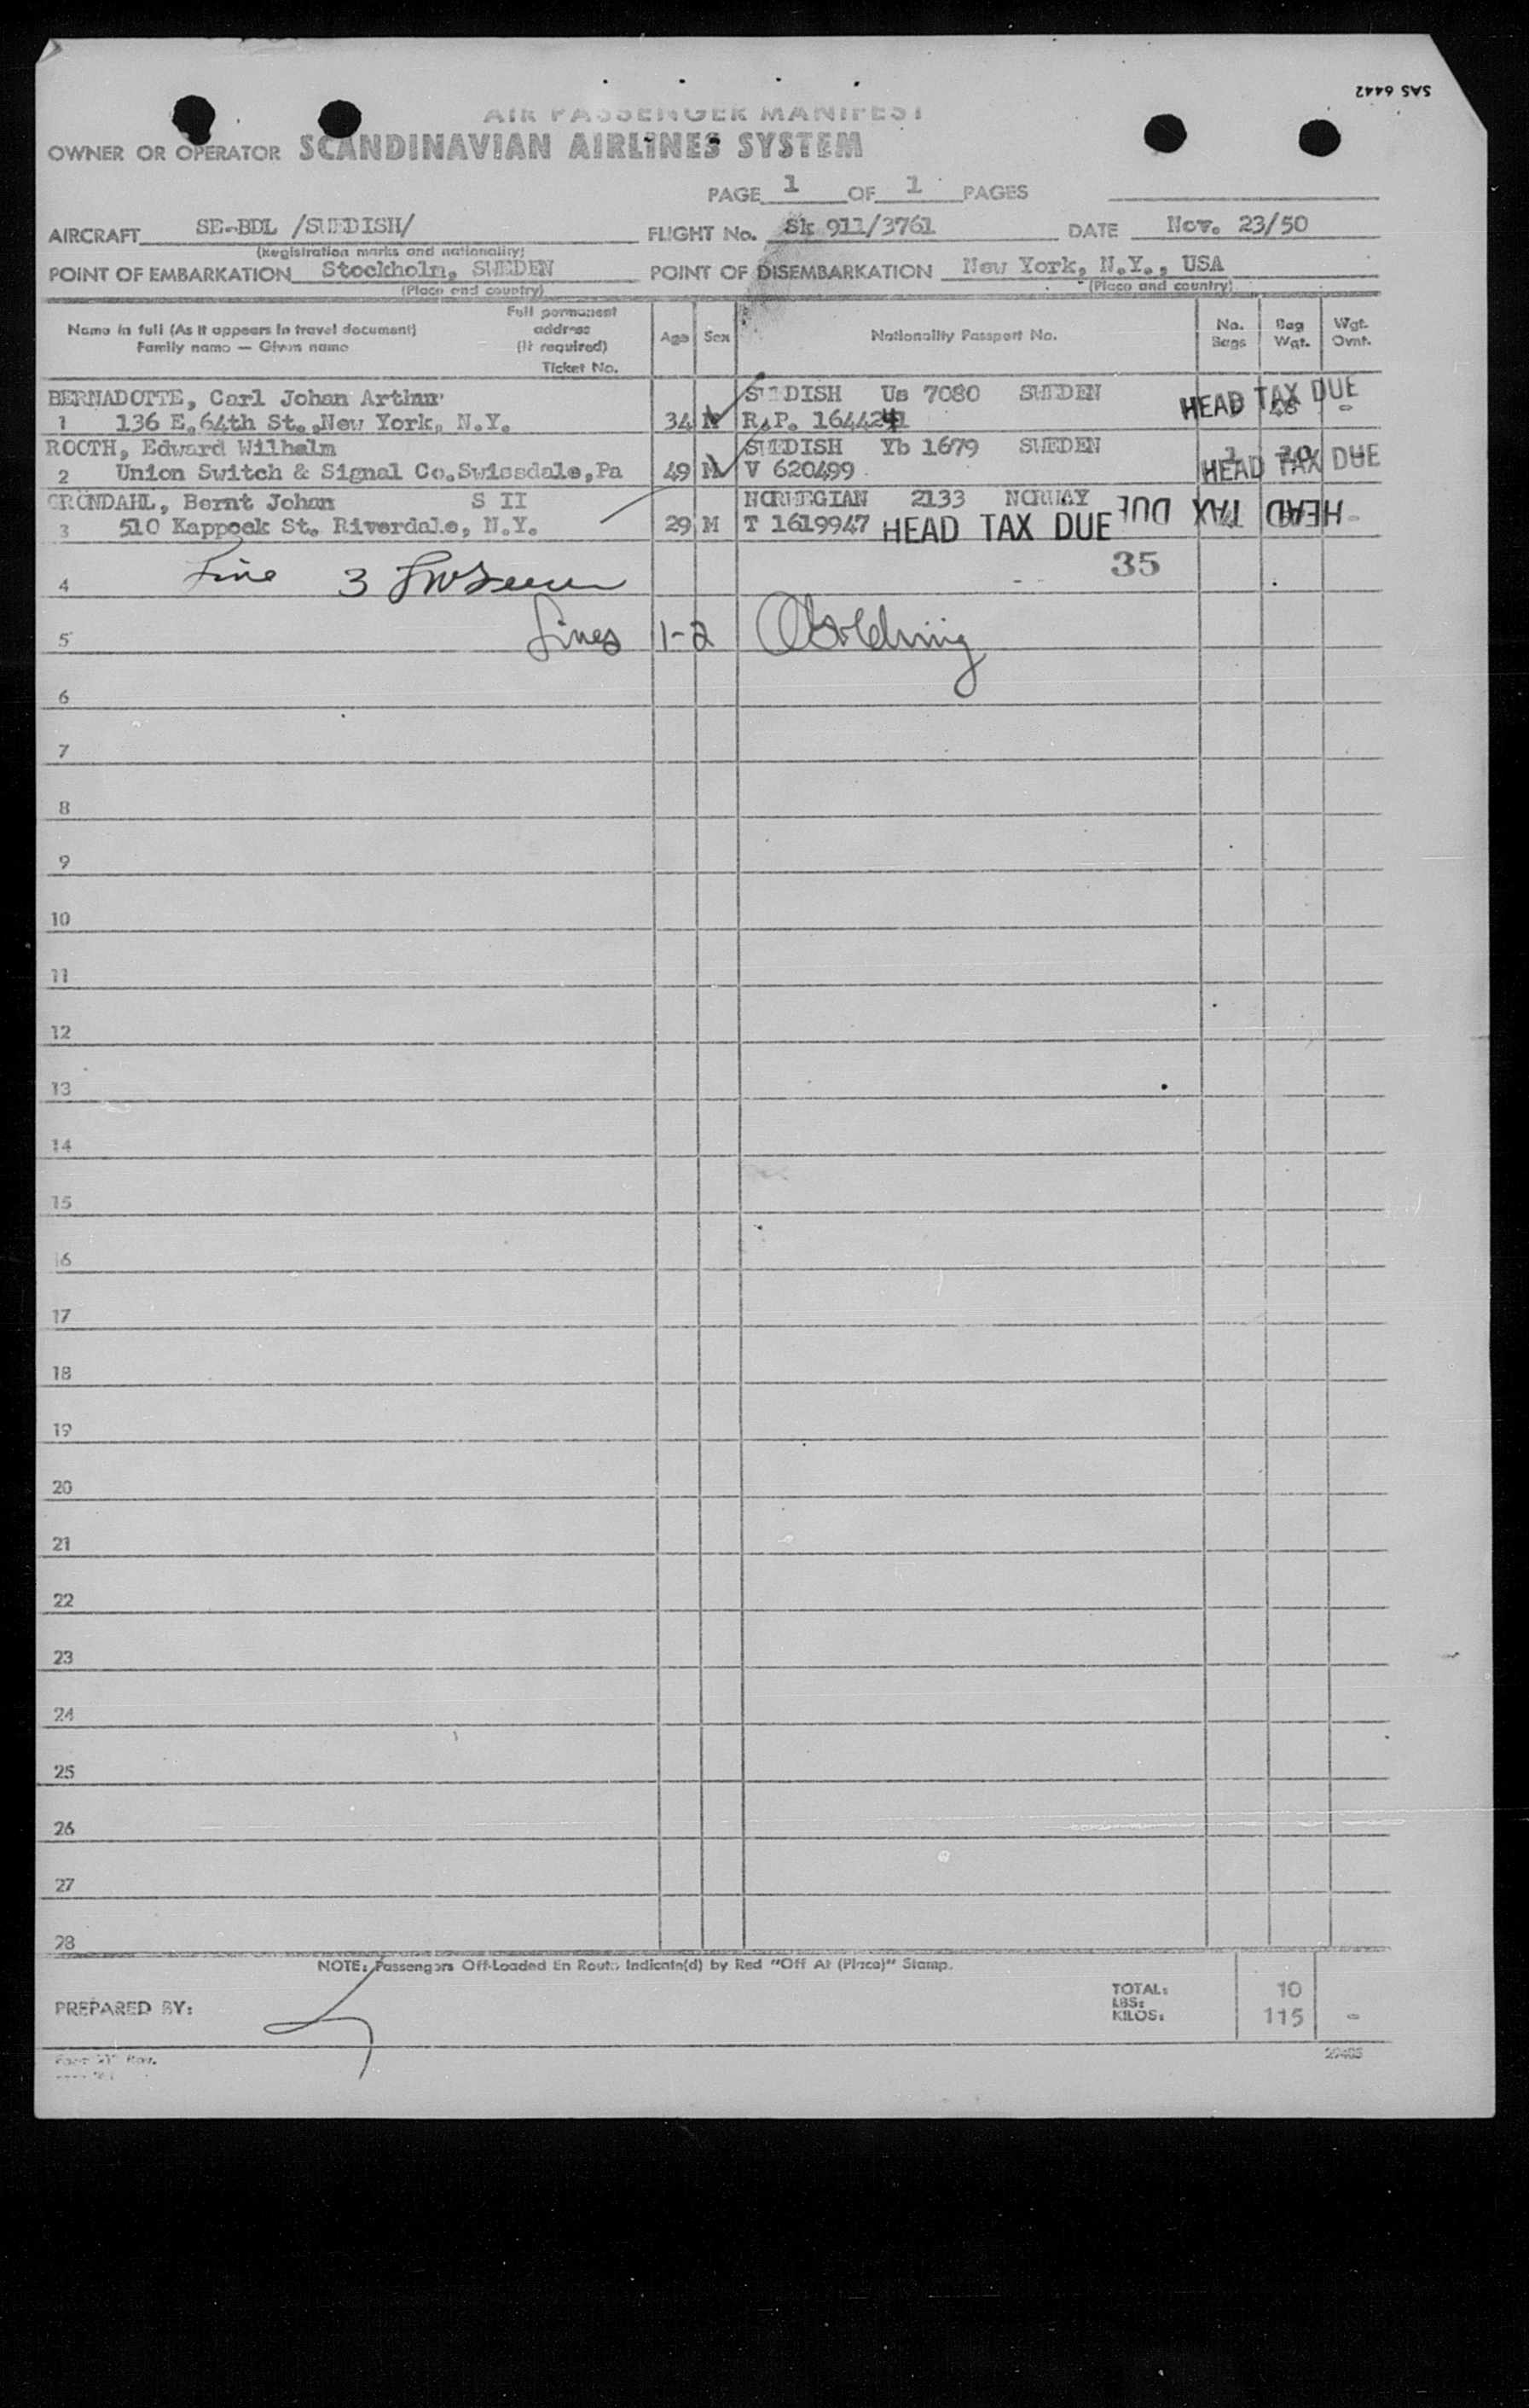 SAS 6442
AIR PASSENGER MANIFEST
OWNER OR OPERATOR SCANDINAVIAN AIRLINES SYSTEM
PAGE 1 OF 1 PAGES
AIRCRAFT SE-BDL /SWEDISH/ FLIGHT No. Sk 911/3761 DATE Nov. 23/50
(Registration marks and nationality)
POINT OF EMBARKATION Stockholm, SWEDEN POINT OF DISEMBARKATION New York, N.Y., USA
(Place and country) (Place and country)
Name in full (As it appears in travel document) Full permanent address (If required) Age Sex Nationality Passport No. No. Bags Bag Wgt. Wgt. Ovnt.
Family name — Given name Ticket No.
BERNADOTTE, Carl Johan Arthur SWEDISH Us 7080 SWEDEN HEAD TAX DUE
1 136 E.64th St.,New York, N.Y. 34 M R.P. -
ROOTH, Edward Wilhelm SWEDISH Yb 1679 SWEDEN
2 Union Switch & Signal Co.Swissdale,Pa 49 M V 620499 HEAD TAX DUE
GRÖNDAHL, Bernt Johan S II NORWEGIAN 2133 NORWAY
3 510 Kappock St. Riverdale, N.Y. 29 M T 1619947 HEAD TAX DUE HEAD TAX DUE -
4 Line 3 35
5 Lines 1-2
6
7
8
9
10
11
12
13
14
15
16
17
18
19
20
21
22
23
24
25
26
27
28
NOTE: Passengers Off-Loaded En Route Indicate(d) by Red "Off At (Place)" Stamp.
PREPARED BY:
TOTAL: 10
LBS:
KILOS: 115 -